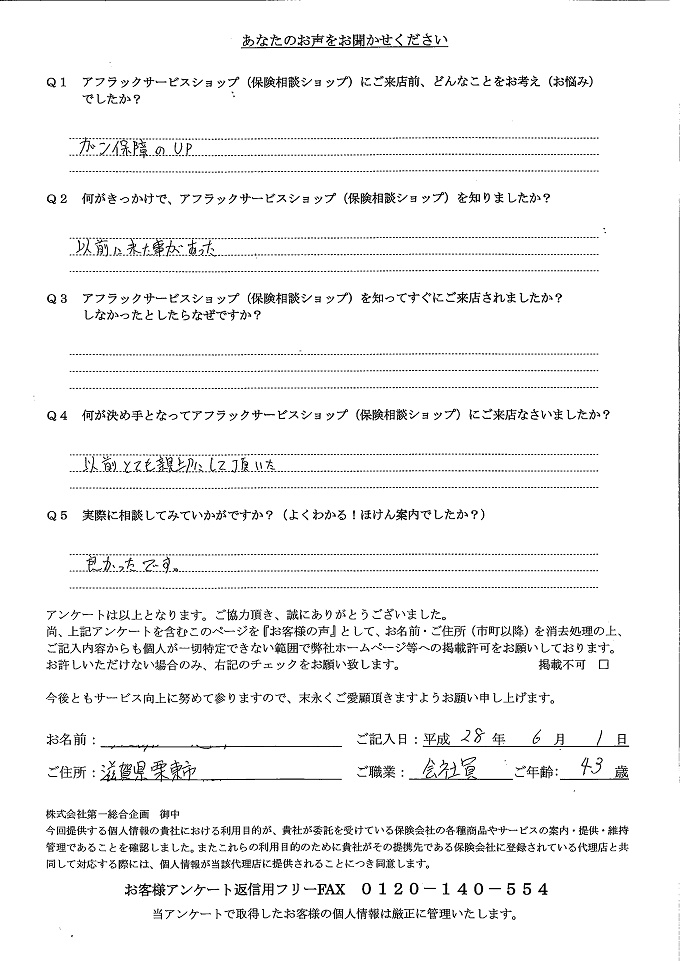 あなたのお声をお聞かせください
Q1 アフラックサービスショップ（保険相談ショップ）にご来店前、どんなことをお考え（お悩み）
でしたか？
ガン保障のUP
Q2 何がきっかけで、アフラックサービスショップ（保険相談ショップ）を知りましたか？
以前に来た事があった
Q3 アフラックサービスショップ（保険相談ショップ）を知ってすぐにご来店されましたか？
しなかったとしたらなぜですか？
Q4 何が決め手となってアフラックサービスショップ（保険相談ショップ）にご来店なさいましたか？
以前とても親切にして頂いた
Q5 実際に相談してみていかがですか？（よくわかる！ほけん案内でしたか？）
良かったです。
アンケートは以上となります。ご協力頂き、誠にありがとうございました。
尚、上記アンケートを含むこのページを『お客様の声』として、お名前・ご住所（市町以降）を消去処理の上、
ご記入内容からも個人が一切特定できない範囲で弊社ホームページ等への掲載許可をお願いしております。
お許しいただけない場合のみ、右記のチェックをお願い致します。 掲載不可 □
今後ともサービス向上に努めて参りますので、末永くご愛顧頂きますようお願い申し上げます。
お名前： ご記入日：平成 28 年 6 月 1 日
ご住所：滋賀県栗東市 ご職業：会社員 ご年齢：43 歳
株式会社第一総合企画 御中
今回提供する個人情報の貴社における利用目的が、貴社が委託を受けている保険会社の各種商品やサービスの案内・提供・維持
管理であることを確認しました。またこれらの利用目的のために貴社がその提携先である保険会社に登録されている代理店と共
同して対応する際には、個人情報が当該代理店に提供されることにつき同意します。
お客様アンケート返信用フリーFAX 0120－140－554
当アンケートで取得したお客様の個人情報は厳正に管理いたします。